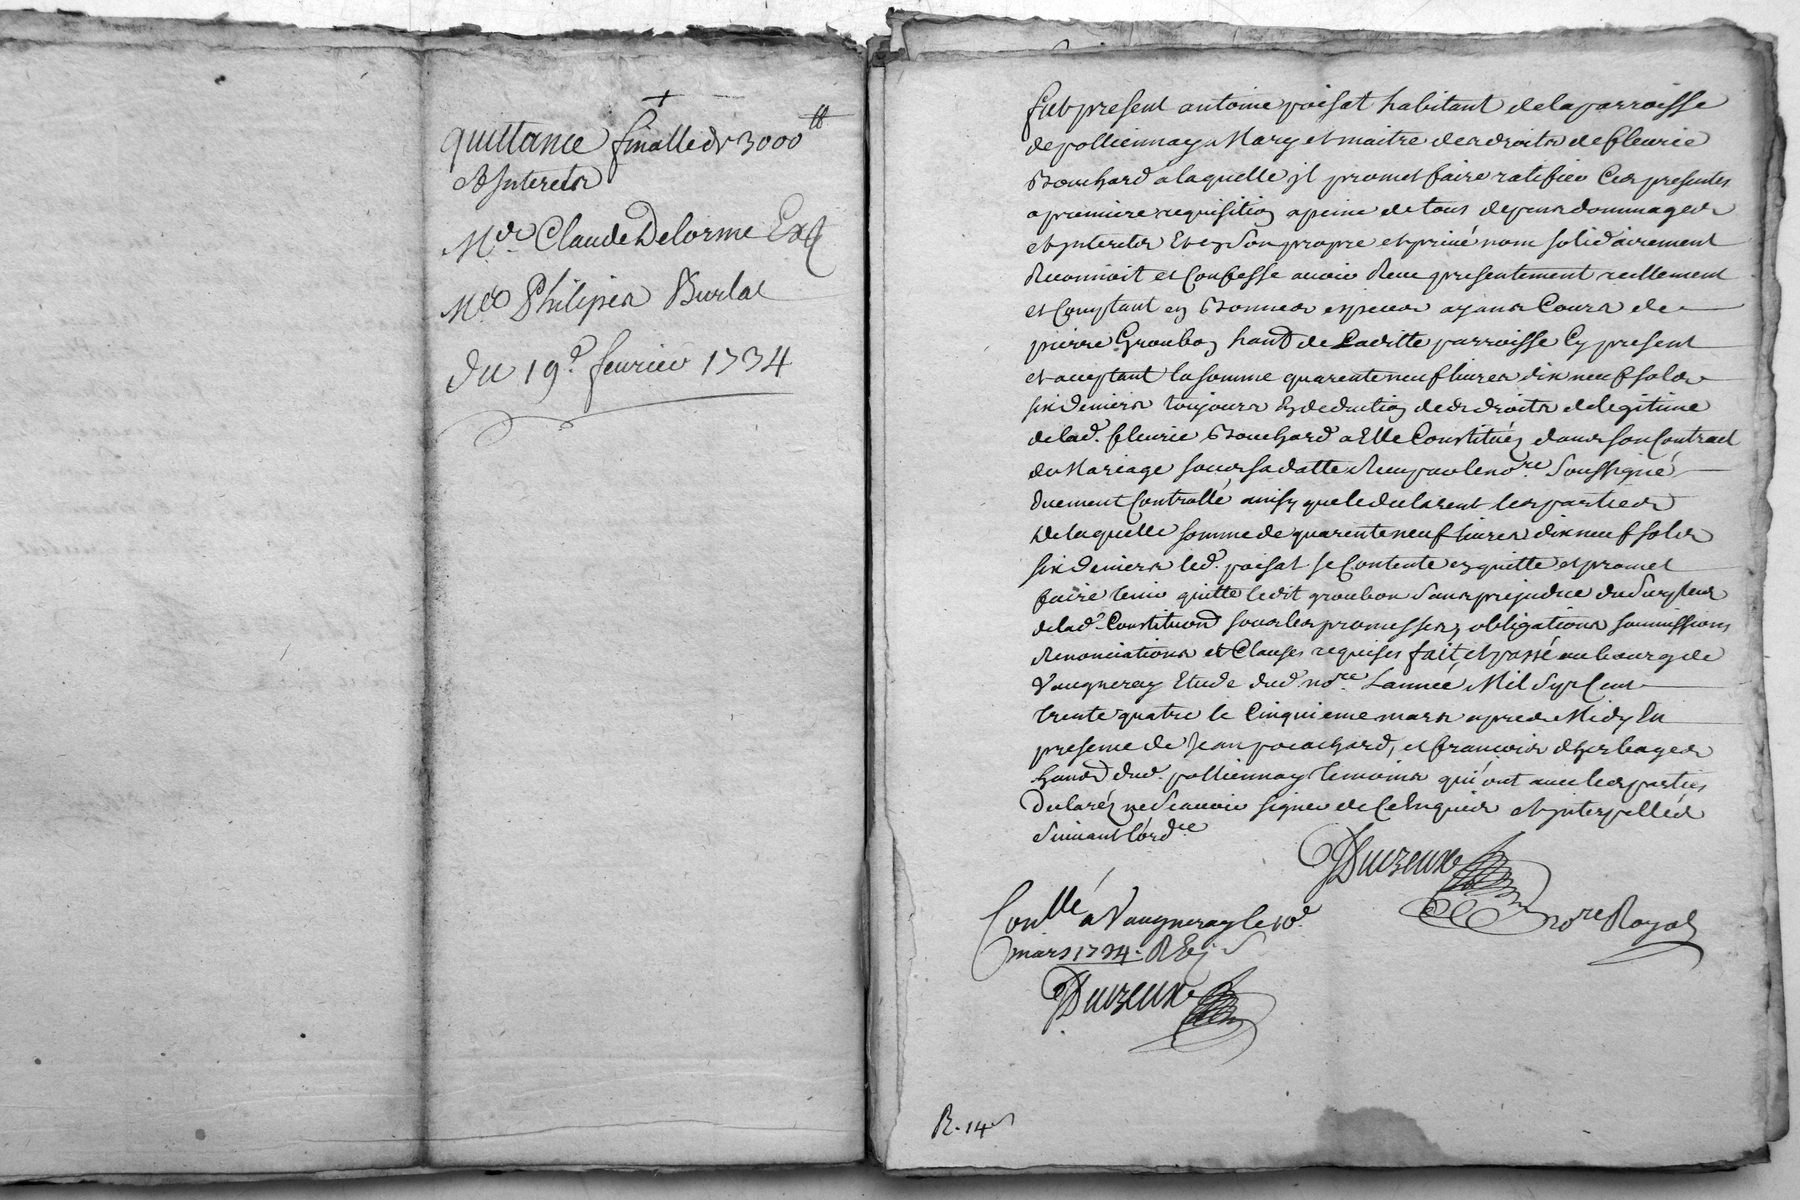 quittance finalle de 3000 ₶
et Interets
Mre Claude Delorme
Mre Philipes Burlat
du 19e fevrier 1734
fut present antoine poisat habitant de la parroisse
de polliennay Mary et maitre des droits de fleurie
Bouchard a laquelle jl promet faire ratifier Ces presentes
a premiere requisition a peine de tous depens dommages
et jnterets Et en Son propre et privé nom solidairement
Reconnoit et Confesse avoir Receu presentement reellement
et Comptant en Bonnes especes ayans Cours de
pierre Groubon hant de Laditte parroisse Cy present
et acceptant la somme quarente neuf livres dix neuf sols
six deniers toujours En deduction des droits de legitime
de lad. fleurie Bouchard a Elle Constitués dans son Contract
de Mariage sous sa datte Receu par le nore Soussigné
duement Controllé ainsy que le declarent les parties
De laquelle somme de quarente neuf livres dix neuf sols
six deniers led. poisat se Contente en quitte et promet
faire tenir quitte ledit groubon Sans prejudice du Surplus
de lad. Constituon sous les promesses, obligations soumissions
Renonciations et Clauses requises fait et passé au bourg de
Vaugneray Etude dud nore L'année Mil Sept Cent
trente quatre le Cinquieme mars apres Midy En
presence de Jean pocachard, et françois dherbages
hants dud. polliennay temoins qui ont avec les parties
Declarés ne Scavoir signer de Ce Enquis et jnterpellés
Suivant l'ordce
Duizeux
nore Royal
Conllé a Vaugneray le 10e
mars 1734. R
Duizeux
R. 14 s